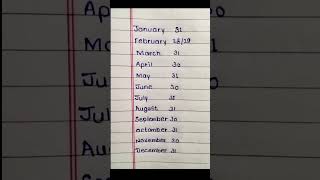 January 31
February 28/29
March 31
April 30
May 31
June 30
July 31
August 31
September 30
octomber 31
November 30
December 31